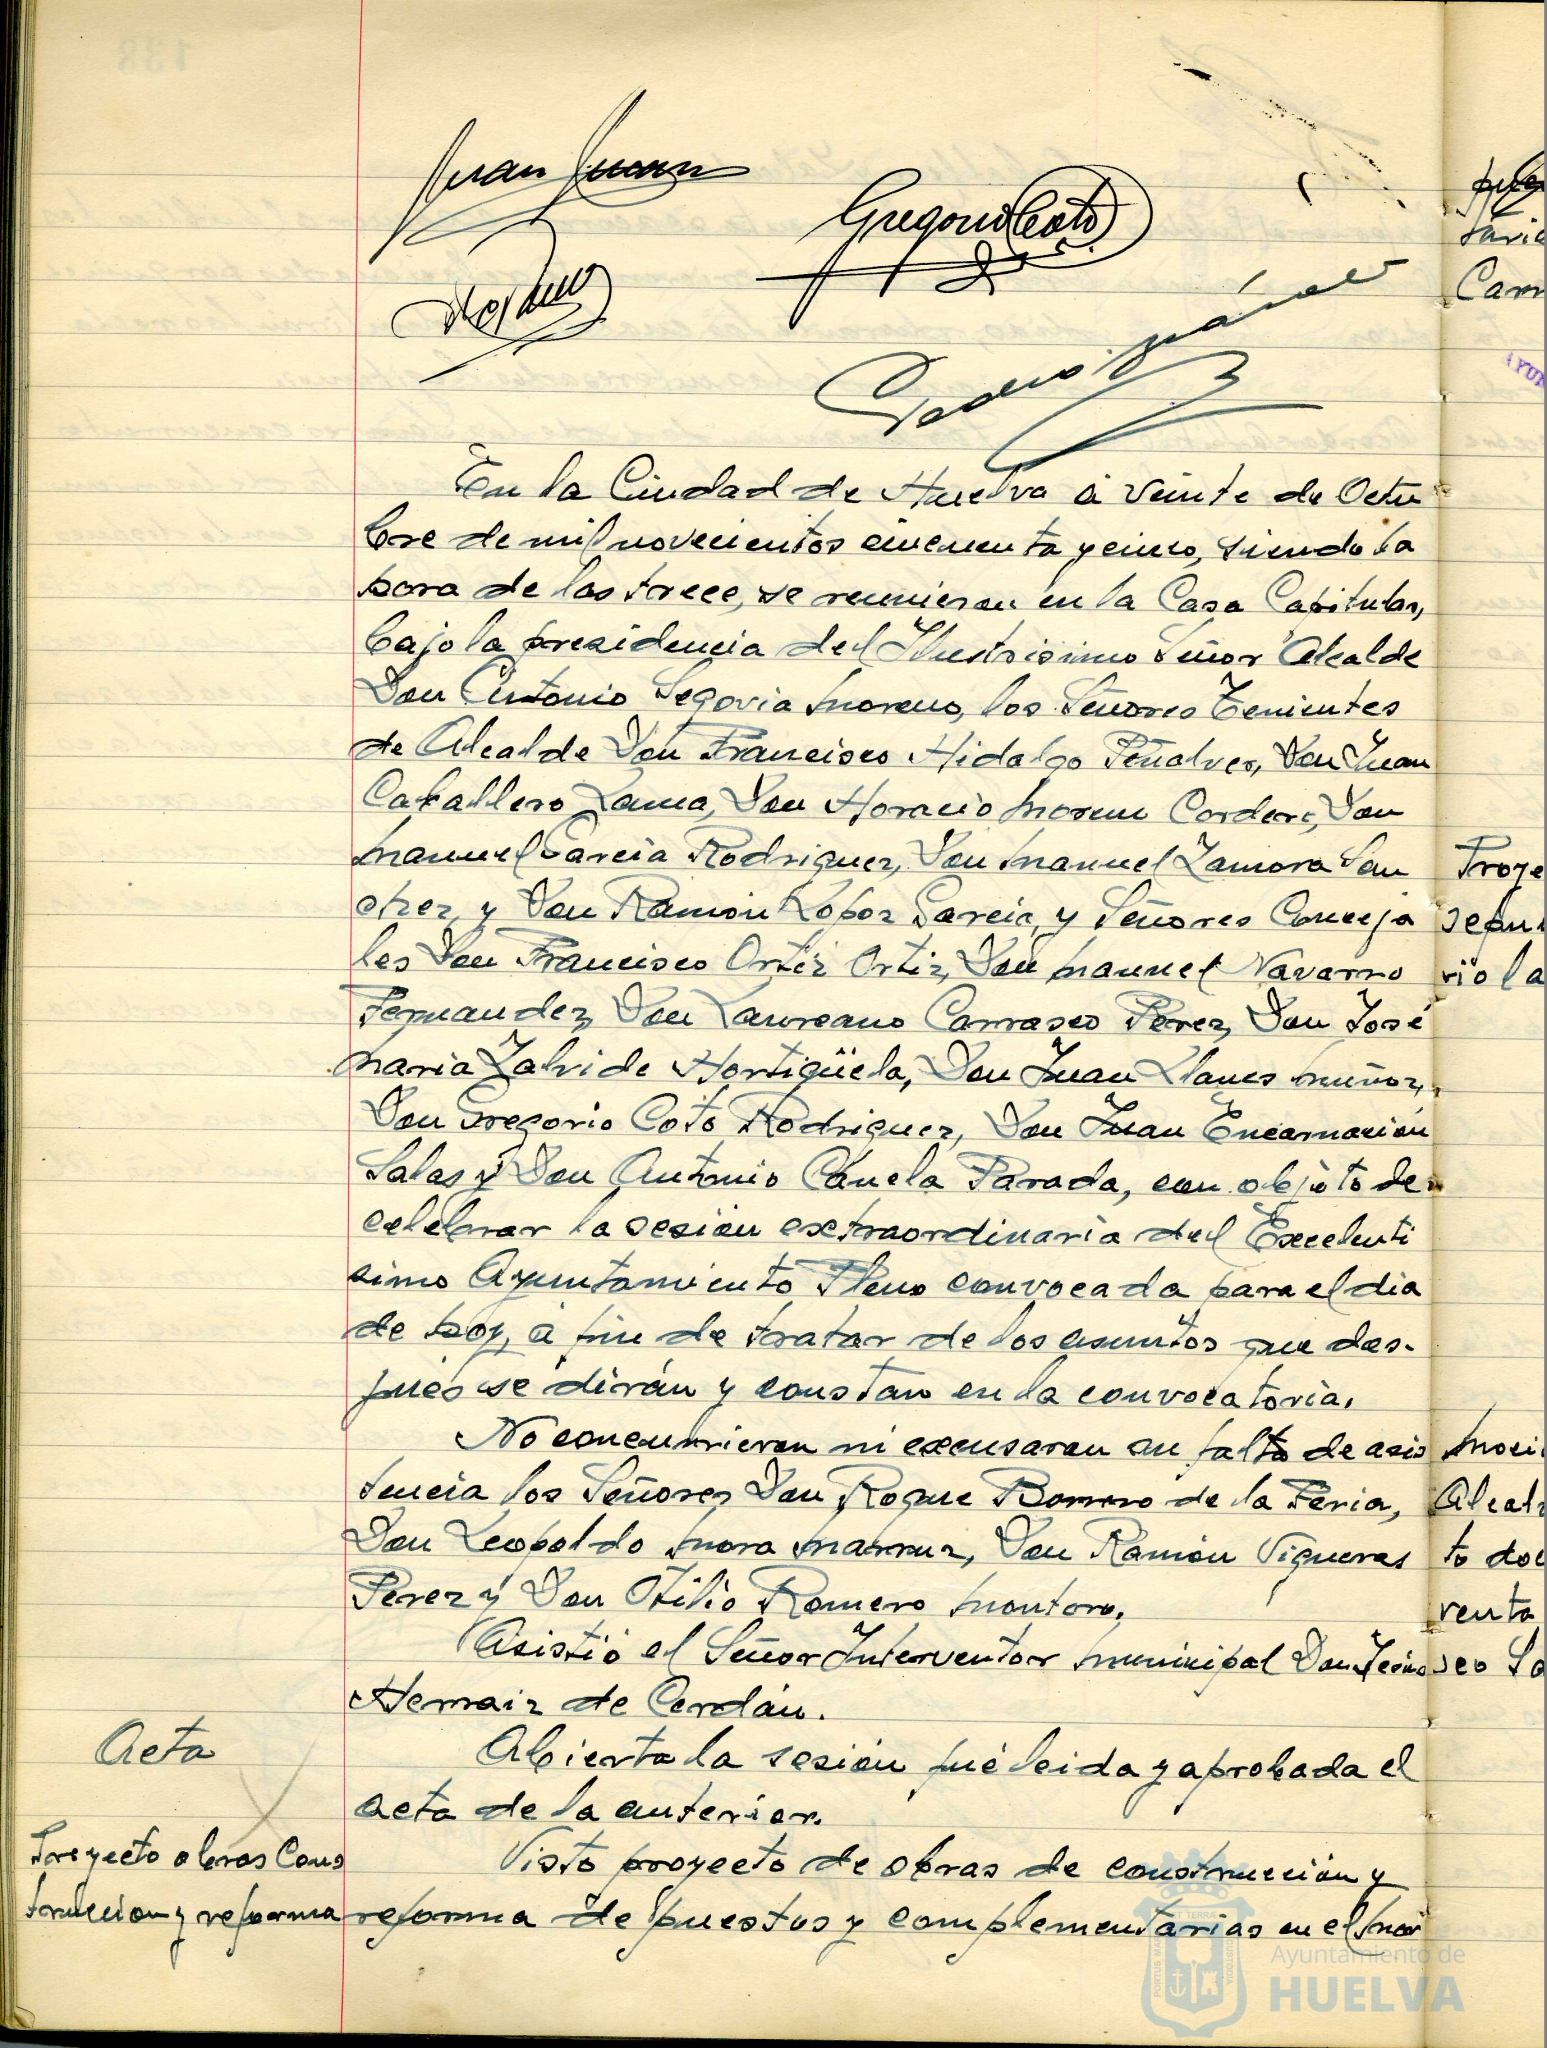 Juan
Gregorio Coto
En la Ciudad de Huelva á veinte de Octu
bre de mil novecientos cincuenta y cinco, siendo la
hora de las trece, se reunieron en la Casa Capitular,
bajo la presidencia del Ilustrisimo Señor Alcalde
Don Antonio Segovia Moreno, los Señores Tenientes
de Alcalde Don Francisco Hidalgo Peñalver, Don Juan
Caballero Lama, Don Horacio Moreno Cordero, Don
Manuel Garcia Rodriguez, Don Manuel Zamora San
chez, y Don Ramón Lopez Garcia, y Señores Conceja
les Don Francisco Ortiz Ortiz, Don Manuel Navarro
Fernandez, Don Laureano Carrasco Perez, Don José
Maria Zalvide Hortigüela, Don Juan Llanes Muñoz,
Don Gregorio Coto Rodriguez, Don Juan Encarnación
Salas y Don Antonio Canela Parada, con objeto de
celebrar la sesión extraordinaria del Excelenti
simo Ayuntamiento Pleno convocada para el dia
de hoy, á fin de tratar de los asuntos que des-
pués se dirán y constan en la convocatoria.
No concurrieron ni excusaron su falta de asis
tencia los Señores Don Roque Borrero de la Feria,
Don Leopoldo Mora Marruz, Don Ramón Vigueras
Perez y Don Otilio Romero Montoro.
Asistió el Señor Interventor Municipal Don
Hernaiz de Cerdán.
Acta
Abierta la sesión fué leida y aprobada el
acta de la anterior.
Proyecto obras Cons
trucción y reforma
Visto proyecto de obras de construcción y
reforma de puestos y complementarias en el Mer
Proye
sepul
rio la
Moci
Alcal
to do
venta
seo
138
Ayuntamiento de
HUELVA